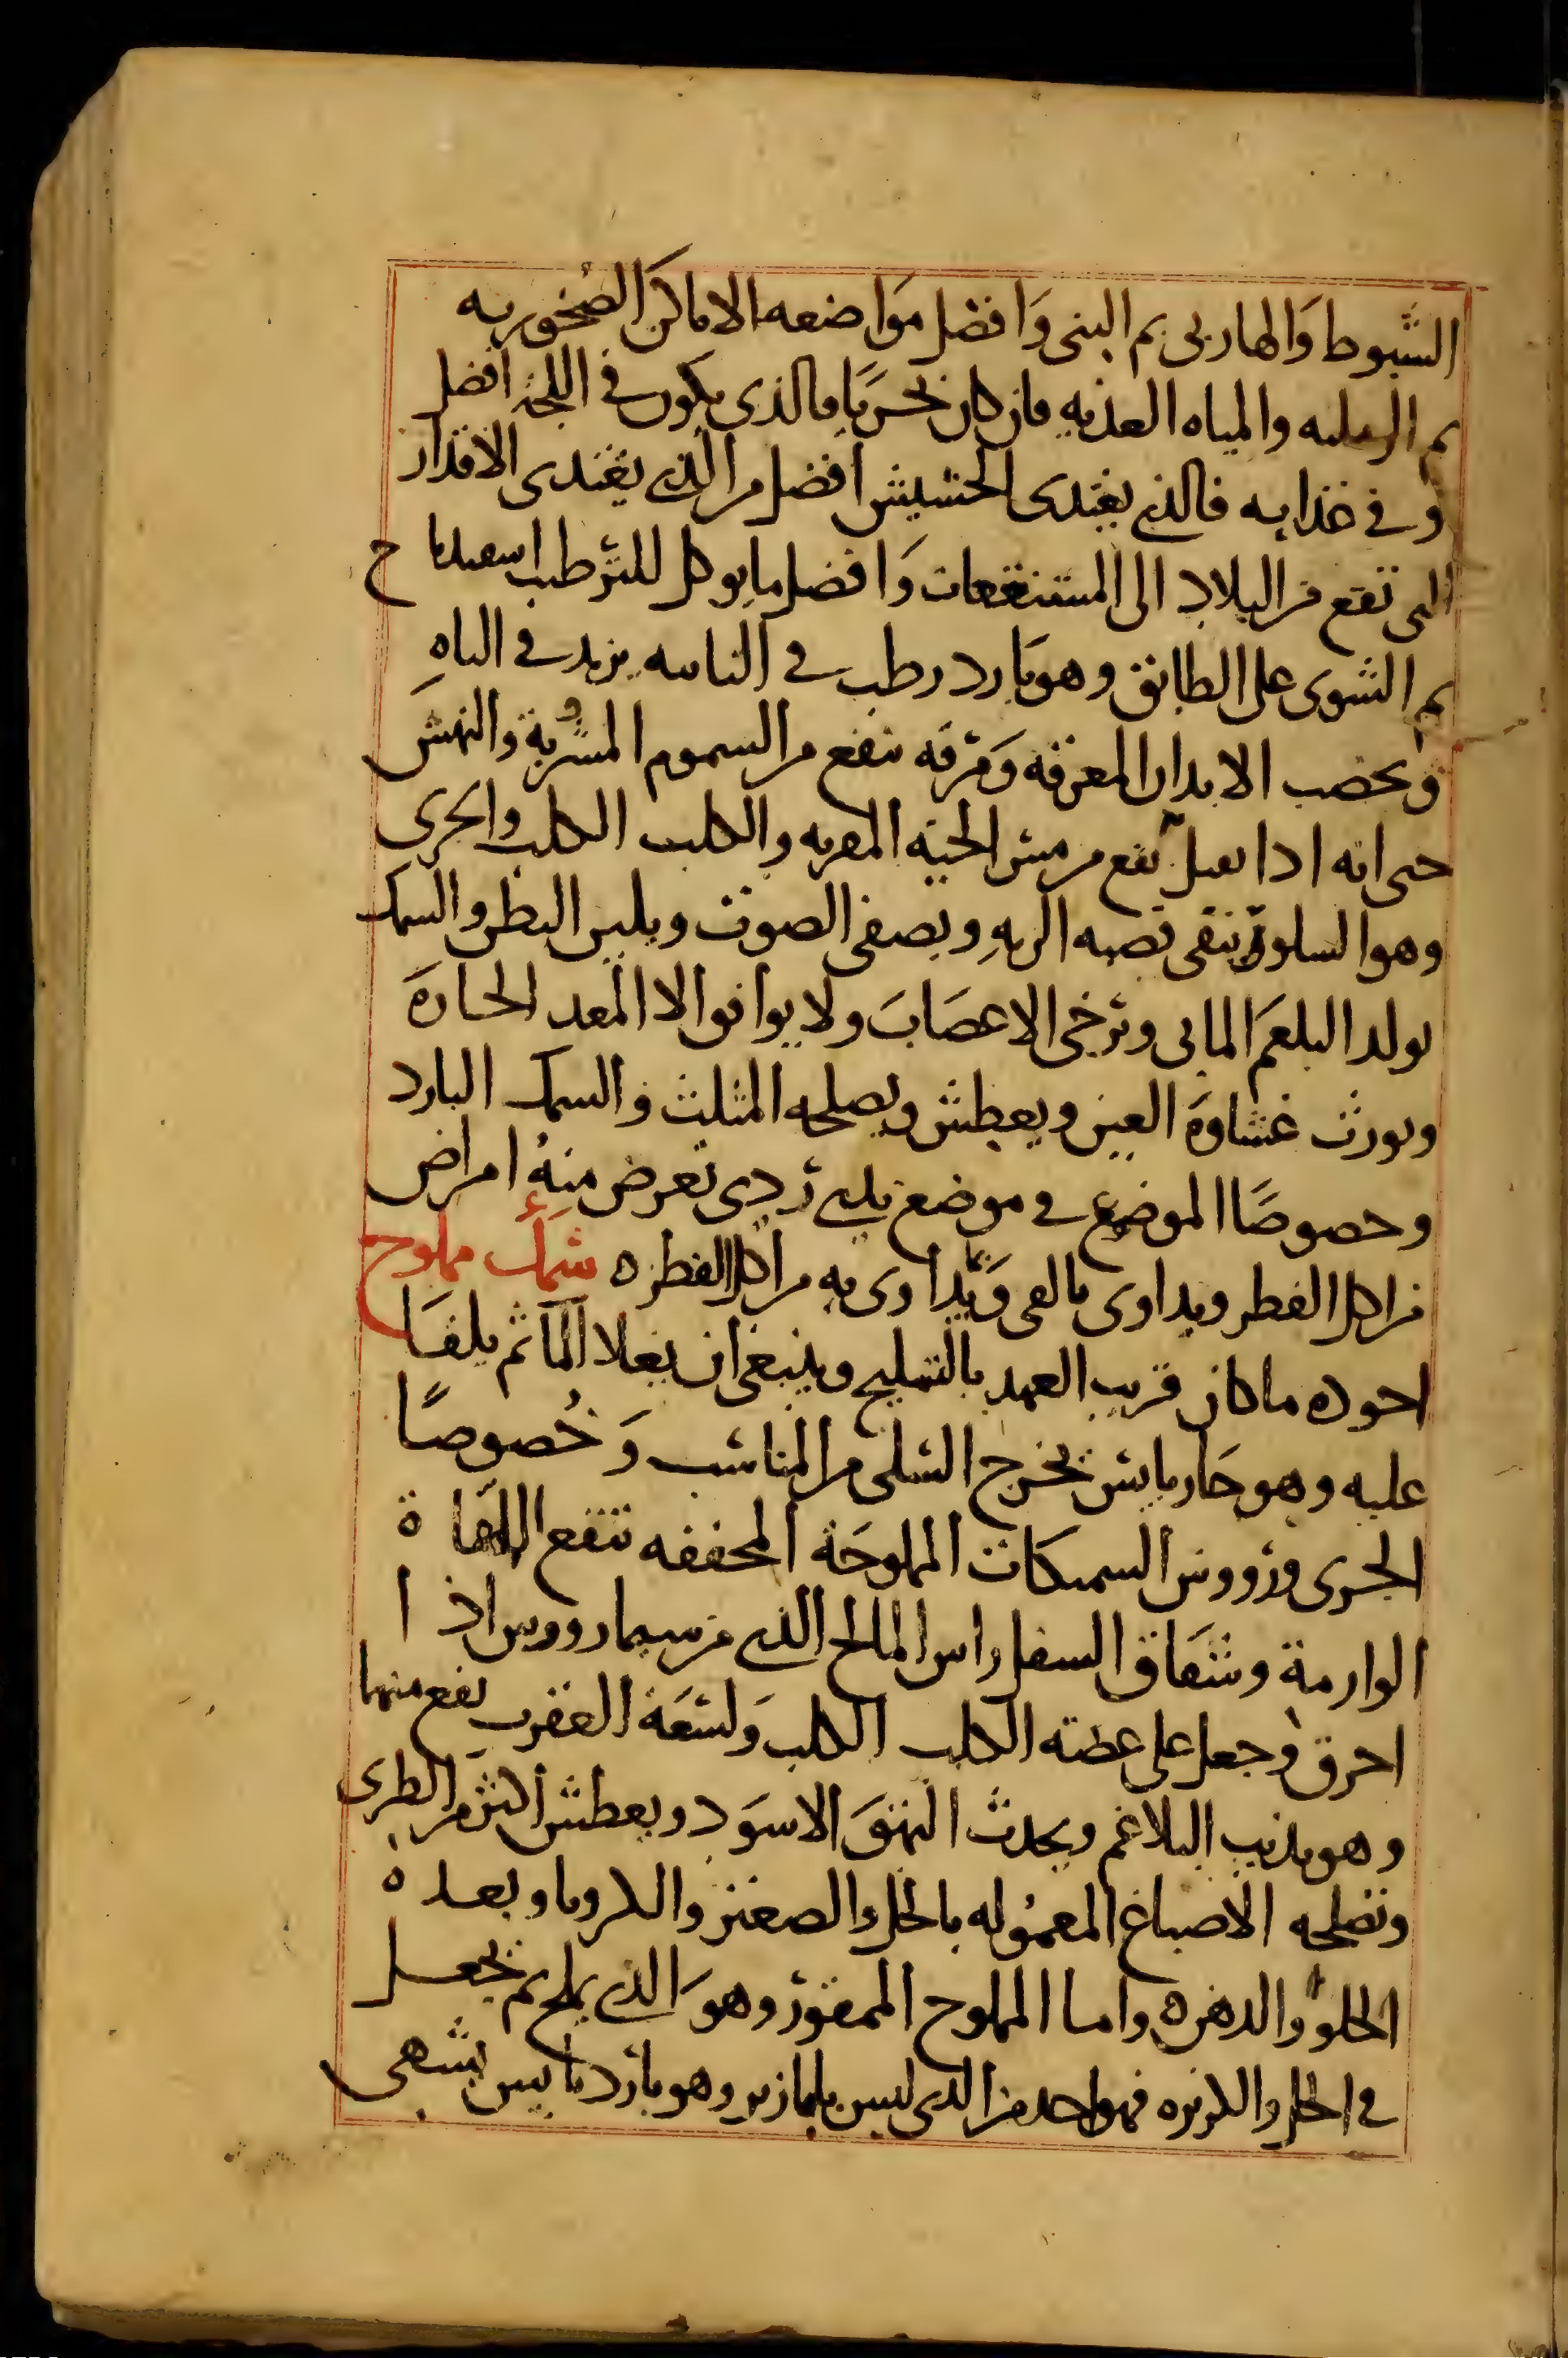 الشبوط والهاربى ثم البنى وَافضل مَواضعه الاماكن الصُخوريه
ثم الرمليه والمياه العذبه فان كان بحريًا فالذى يكون فى اللجة افضل
وفى غذايه فالذى يغتدى الحشيش افضل من الذى يغتدى الاقذار
التى تقع من البلاد الى المستنقعات وَافضل ما يوكل للترطيب اسفيدباح
ثم الشوى على الطابق وهو بَارد رطب فى الثانيه يزيد فى الباهِ
ويخصب الابدان المعرقه وَمرقه ينفع من السموم المشروبة والنهش
حتى انه اذا نقل نفع من نهش الحيّه المقرنه والكلب الكلب والجرى
وهو السلور ينقى قصبه الريهِ ويصفى الصوت ويلين البطن والسمك
يولد البلغمَ المايى ويرخى الاعصَابَ ولا يوافق الا المعد الحارة
ويورث غشاوة العين ويعطش ويصلحه المثلث والسمك البارد
وخصوصًا الموضوع فى موضع ندى ردى تعرض منهُ امراض
من اكل الفطر ويداوى بالقى وَيتداوى به من اكل الفطره سَمك مملوح
اجوده ماكان قريب العهد بالتمليح وينبغى ان يغلا الما ثم يلقَا
عليه وهو حَار يابس يخرج السلى من المناشب وَخُصوصًا
الجرى ورووس السميكات المملوحَة المجففه تنفع اللَّهَاة
الوارمة وشقَاق السفل راس المالح الذى من سمارووس اذا
احرق وجعل على عضّة الكلب الكلب وَلسَعَة العقرب نفع منهما
وهو يذيب البلاغم ويحدث البَهَقَ الاسوَد ويعطش اكثرَ من الطرى
وتصلحه الاصباغ المعمُوله بالخل والصعتر والكرويا وبعده
الحلوَّ والدهن ه واما المملوح الممقور وهوَ الذى يملح ثم يجعل
فى الخل والكزبره فهو احمد من الذى ليس باباز ير وهو بَارد يَابس يشهى